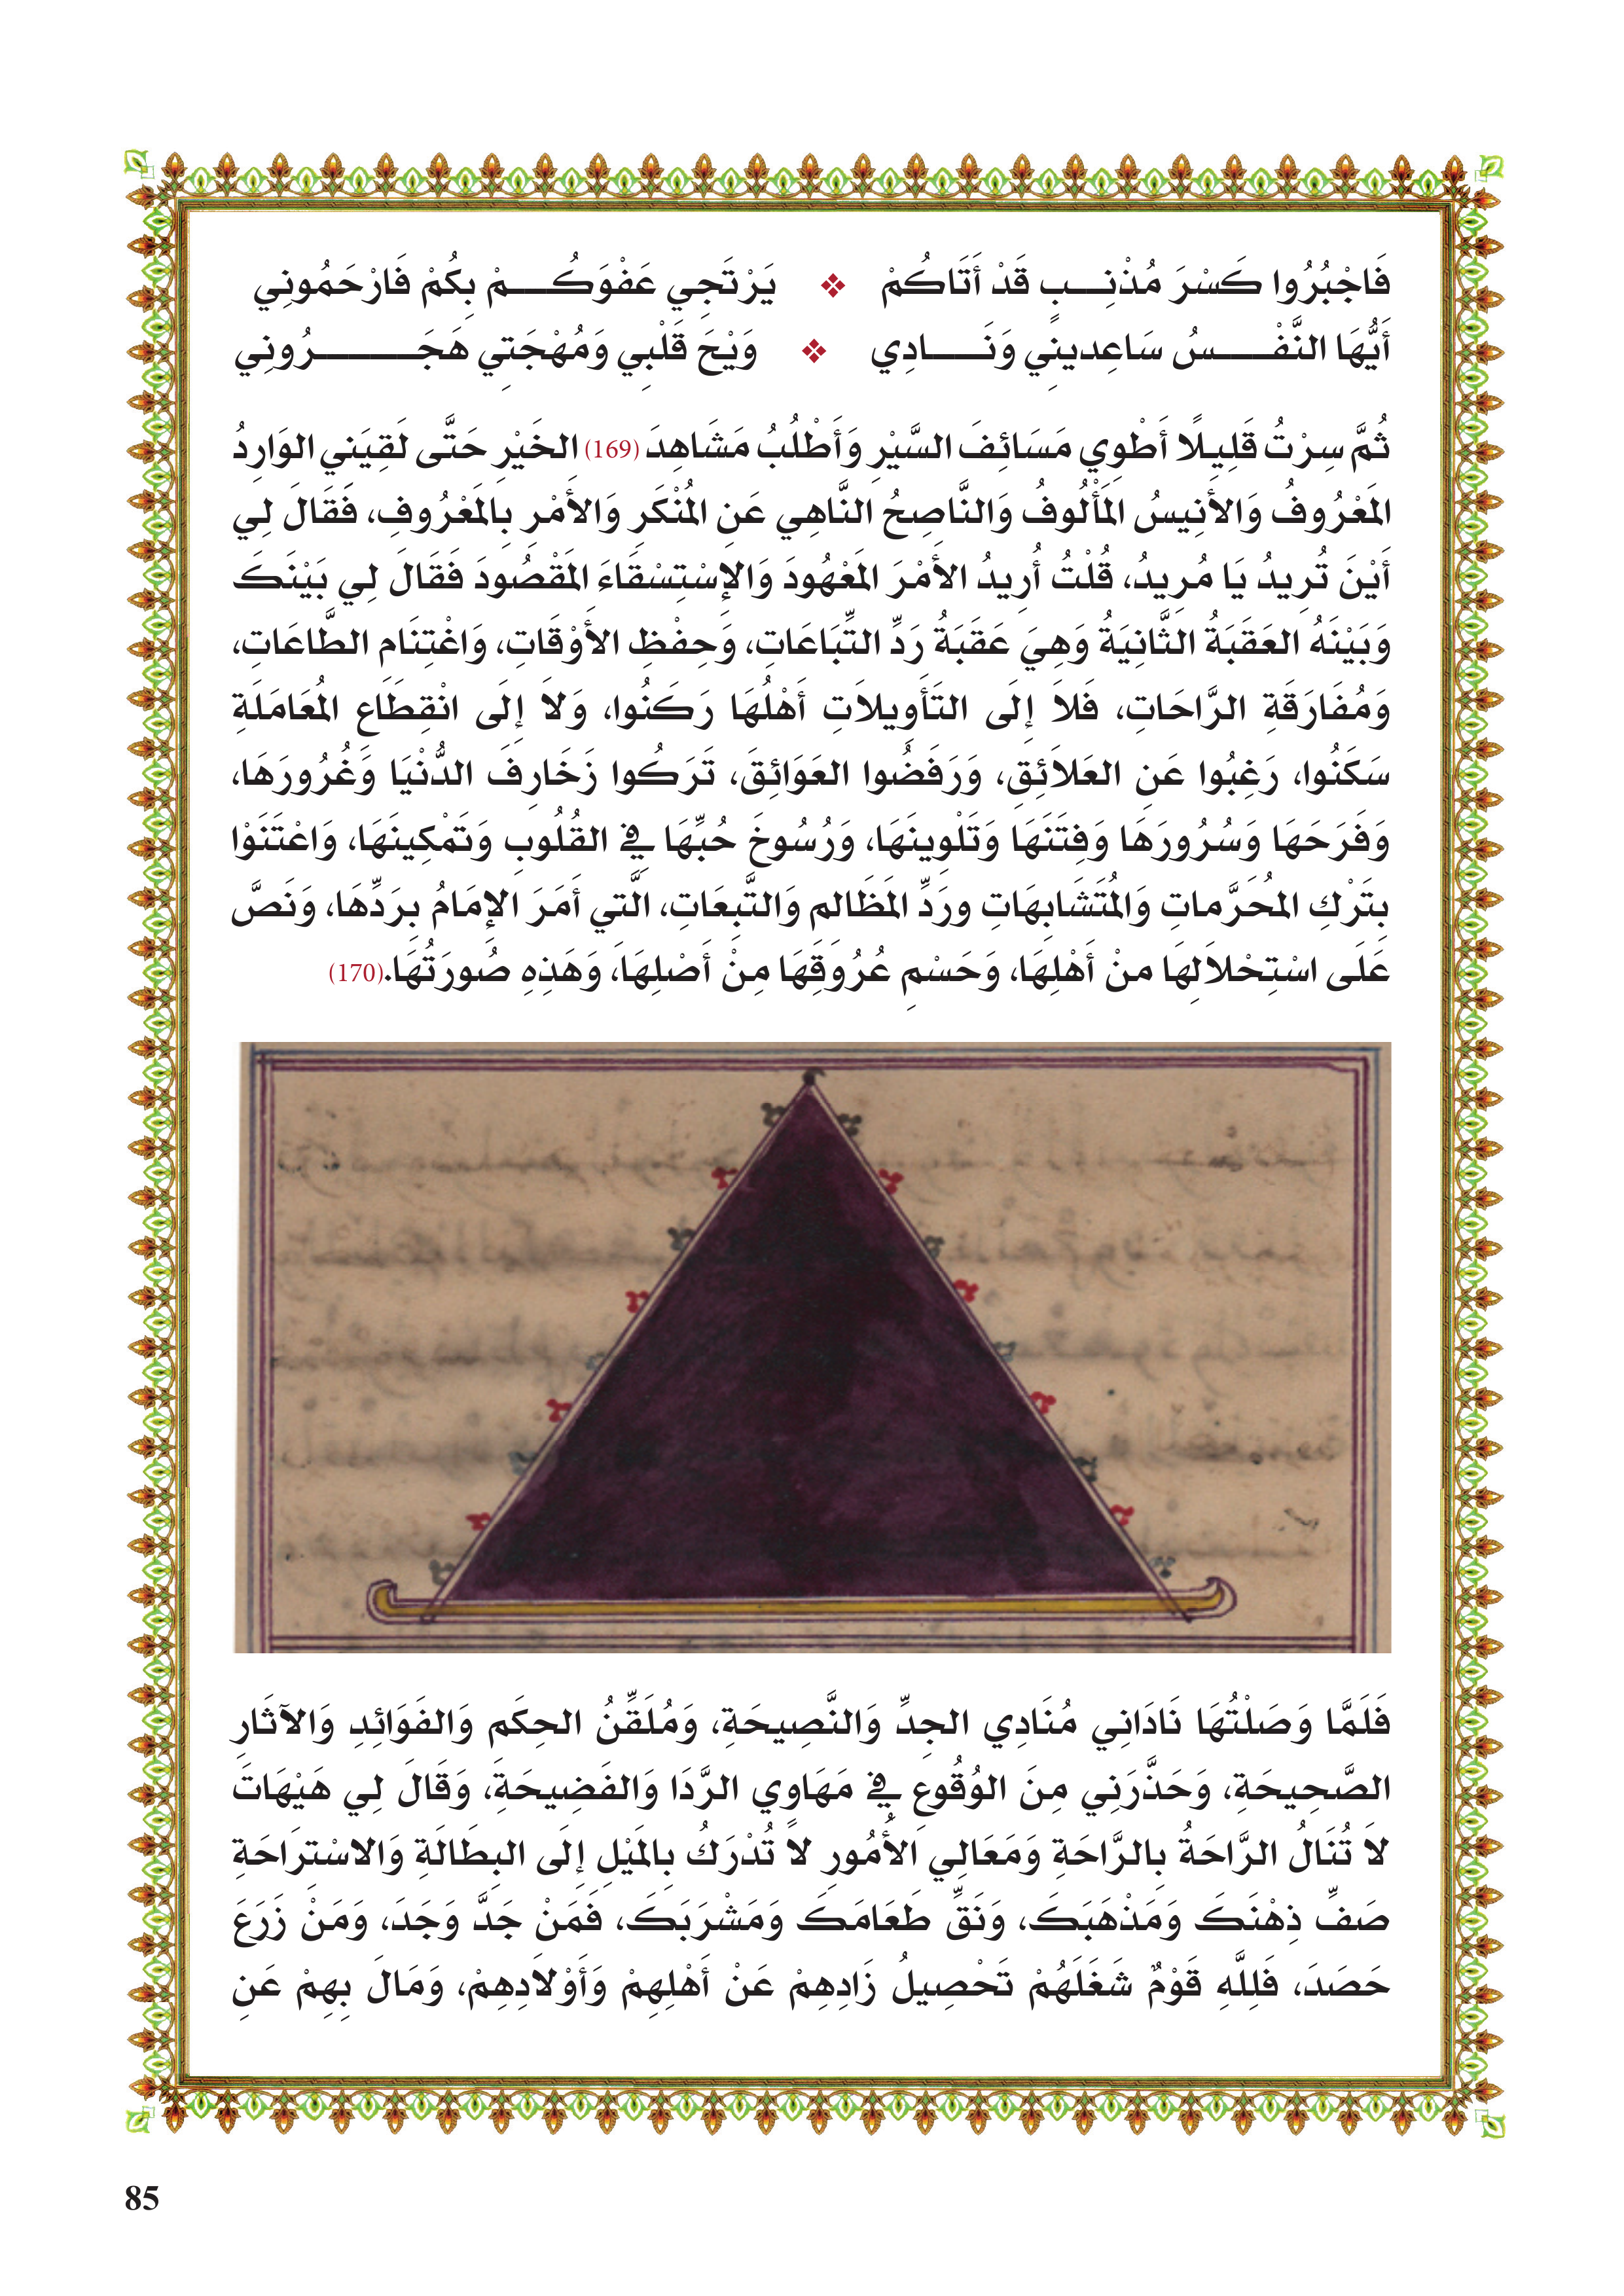 فَاجْبُرُوا كَسْرَ مُذْنِبٍ قَدْ أَتَاكُمْ ❖ يَرْتَجِي عَفْوَكُمْ بِكُمْ فَارْحَمُونِي
أَيُّهَا النَّفْسُ سَاعِدِينِي وَنَادِي ❖ وَيْحَ قَلْبِي وَمُهْجَتِي هَجَرُونِي
ثُمَّ سِرْتُ قَلِيلًا أَطْوِي مَسَائِفَ السَّيْرِ وَأَطْلُبُ مَشَاهِدَ (169) الخَيْرِ حَتَّى لَقِيَنِي الوَارِدُ
المَعْرُوفُ وَالأَنِيسُ المَأْلُوفُ وَالنَّاصِحُ النَّاهِي عَنِ المُنْكَرِ وَالأَمْرِ بِالمَعْرُوفِ، فَقَالَ لِي
أَيْنَ تُرِيدُ يَا مُرِيدُ، قُلْتُ أُرِيدُ الأَمْرَ المَعْهُودَ وَالإِسْتِسْقَاءَ المَقْصُودَ فَقَالَ لِي بَيْنَكَ
وَبَيْنَهُ العَقَبَةُ الثَّانِيَةُ وَهِيَ عَقَبَةُ رَدِّ التِّبَاعَاتِ، وَحِفْظِ الأَوْقَاتِ، وَاغْتِنَامِ الطَّاعَاتِ،
وَمُفَارَقَةِ الرَّاحَاتِ، فَلاَ إِلَى التَأْوِيلاَتِ أَهْلُهَا رَكَنُوا، وَلاَ إِلَى انْقِطَاعِ المُعَامَلَةِ
سَكَنُوا، رَغِبُوا عَنِ العَلاَئِقِ، وَرَفَضُوا العَوَائِقَ، تَرَكُوا زَخَارِفَ الدُّنْيَا وَغُرُورَهَا،
وَفَرَحَهَا وَسُرُورَهَا وَفِتَنَهَا وَتَلْوِينَهَا، وَرُسُوخَ حُبِّهَا فِي القُلُوبِ وَتَمْكِينَهَا، وَاعْتَنَوْا
بِتَرْكِ المُحَرَّمَاتِ وَالمُتَشَابِهَاتِ ورَدِّ المَظَالِمِ وَالتَّبِعَاتِ، الَّتِي أَمَرَ الإِمَامُ بِرَدِّهَا، وَنَصَّ
عَلَى اسْتِحْلاَلِهَا مِنْ أَهْلِهَا، وَحَسْمِ عُرُوقِهَا مِنْ أَصْلِهَا، وَهَذِهِ صُورَتُهَا.(170)
فَلَمَّا وَصَلْتُهَا نَادَانِي مُنَادِي الجِدِّ وَالنَّصِيحَةِ، وَمُلَقِّنُ الحِكَمِ وَالفَوَائِدِ وَالآثَارِ
الصَّحِيحَةِ، وَحَذَّرَنِي مِنَ الوُقُوعِ فِي مَهَاوِي الرَّدَا وَالفَضِيحَةِ، وَقَالَ لِي هَيْهَاتَ
لاَ تُنَالُ الرَّاحَةُ بِالرَّاحَةِ وَمَعَالِي الأُمُورِ لاَ تُدْرَكُ بِالمَيْلِ إِلَى البِطَالَةِ وَالاسْتِرَاحَةِ
صَفِّ ذِهْنَكَ وَمَذْهَبَكَ، وَنَقِّ طَعَامَكَ وَمَشْرَبَكَ، فَمَنْ جَدَّ وَجَدَ، وَمَنْ زَرَعَ
حَصَدَ، فَلِلَّهِ قَوْمٌ شَغَلَهُمْ تَحْصِيلُ زَادِهِمْ عَنْ أَهْلِهِمْ وَأَوْلاَدِهِمْ، وَمَالَ بِهِمْ عَنِ
85